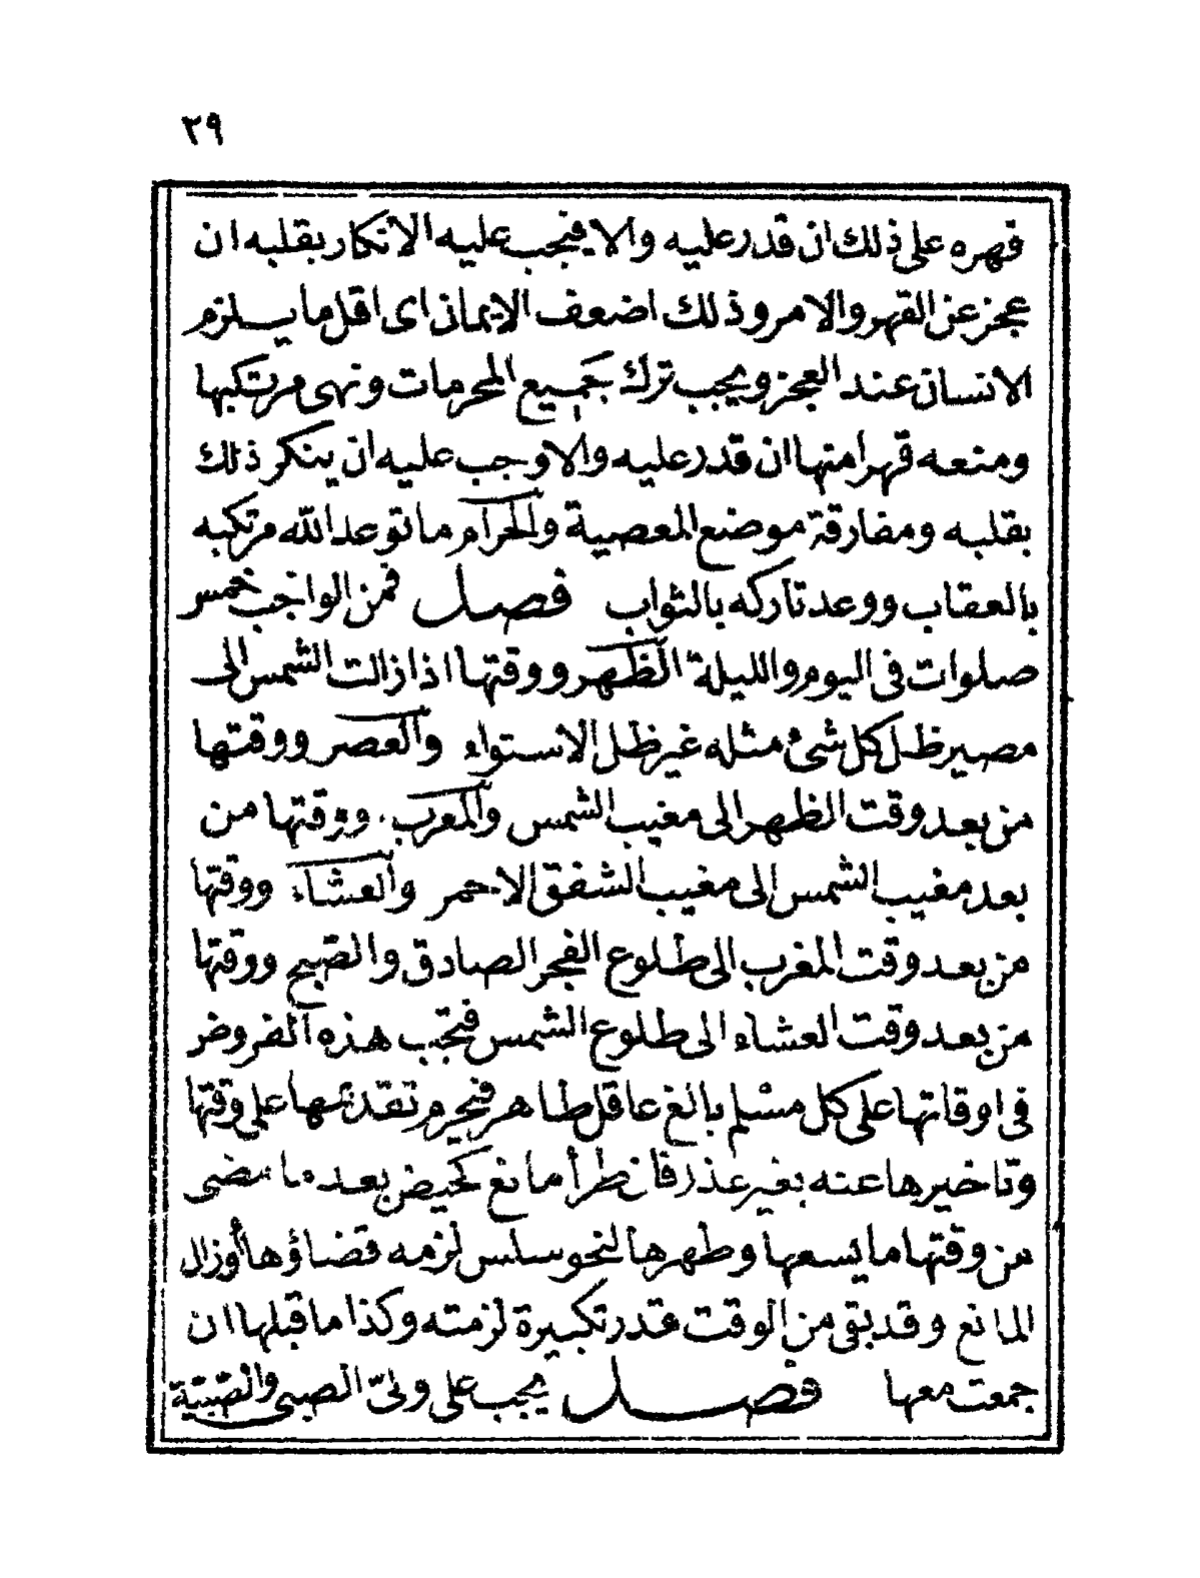 ٣٩
قهره على ذلك ان قدر عليه والا فيجب عليه الانكار بقلبه ان
عجز عن القهر والامر وذلك اضعف الايمان اى اقل ما يلزم
الانسان عند العجز ويجب ترك جميع المحرمات ونهى مرتكبها
ومنعه قهرا منها ان قدر عليه والا وجب عليه ان ينكر ذلك
بقلبه ومفارقة موضع المعصية والحرام ما توعد الله مرتكبه
بالعقاب ووعد تاركه بالثواب فصل فمن الواجب خمس
صلوات فى اليوم والليلة الظهر ووقتها اذا زالت الشمس الى
مصير ظل كل شئ مثله غير ظل الاستواء والعصر ووقتها
من بعد وقت الظهر الى مغيب الشمس والمغرب ووقتها من
بعد مغيب الشمس الى مغيب الشفق الاحمر والعشاء ووقتها
من بعد وقت المغرب الى طلوع الفجر الصادق والصبح ووقتها
من بعد وقت العشاء الى طلوع الشمس فتجب هذه الفروض
فى اوقاتها على كل مسلم بالغ عاقل طاهر فيحرم تقديمها على وقتها
وتاخيرها عنه بغير عذر فان طرأ مانع كحيض بعد ما مضى
من وقتها ما يسعها وطهرها لنحو سلس لزمه قضاؤها أو زال
المانع وقد بقى من الوقت قدر تكبيرة لزمته وكذا ما قبلها ان
جمعت معها فصل يجب على ولىّ الصبى والصّبيّة